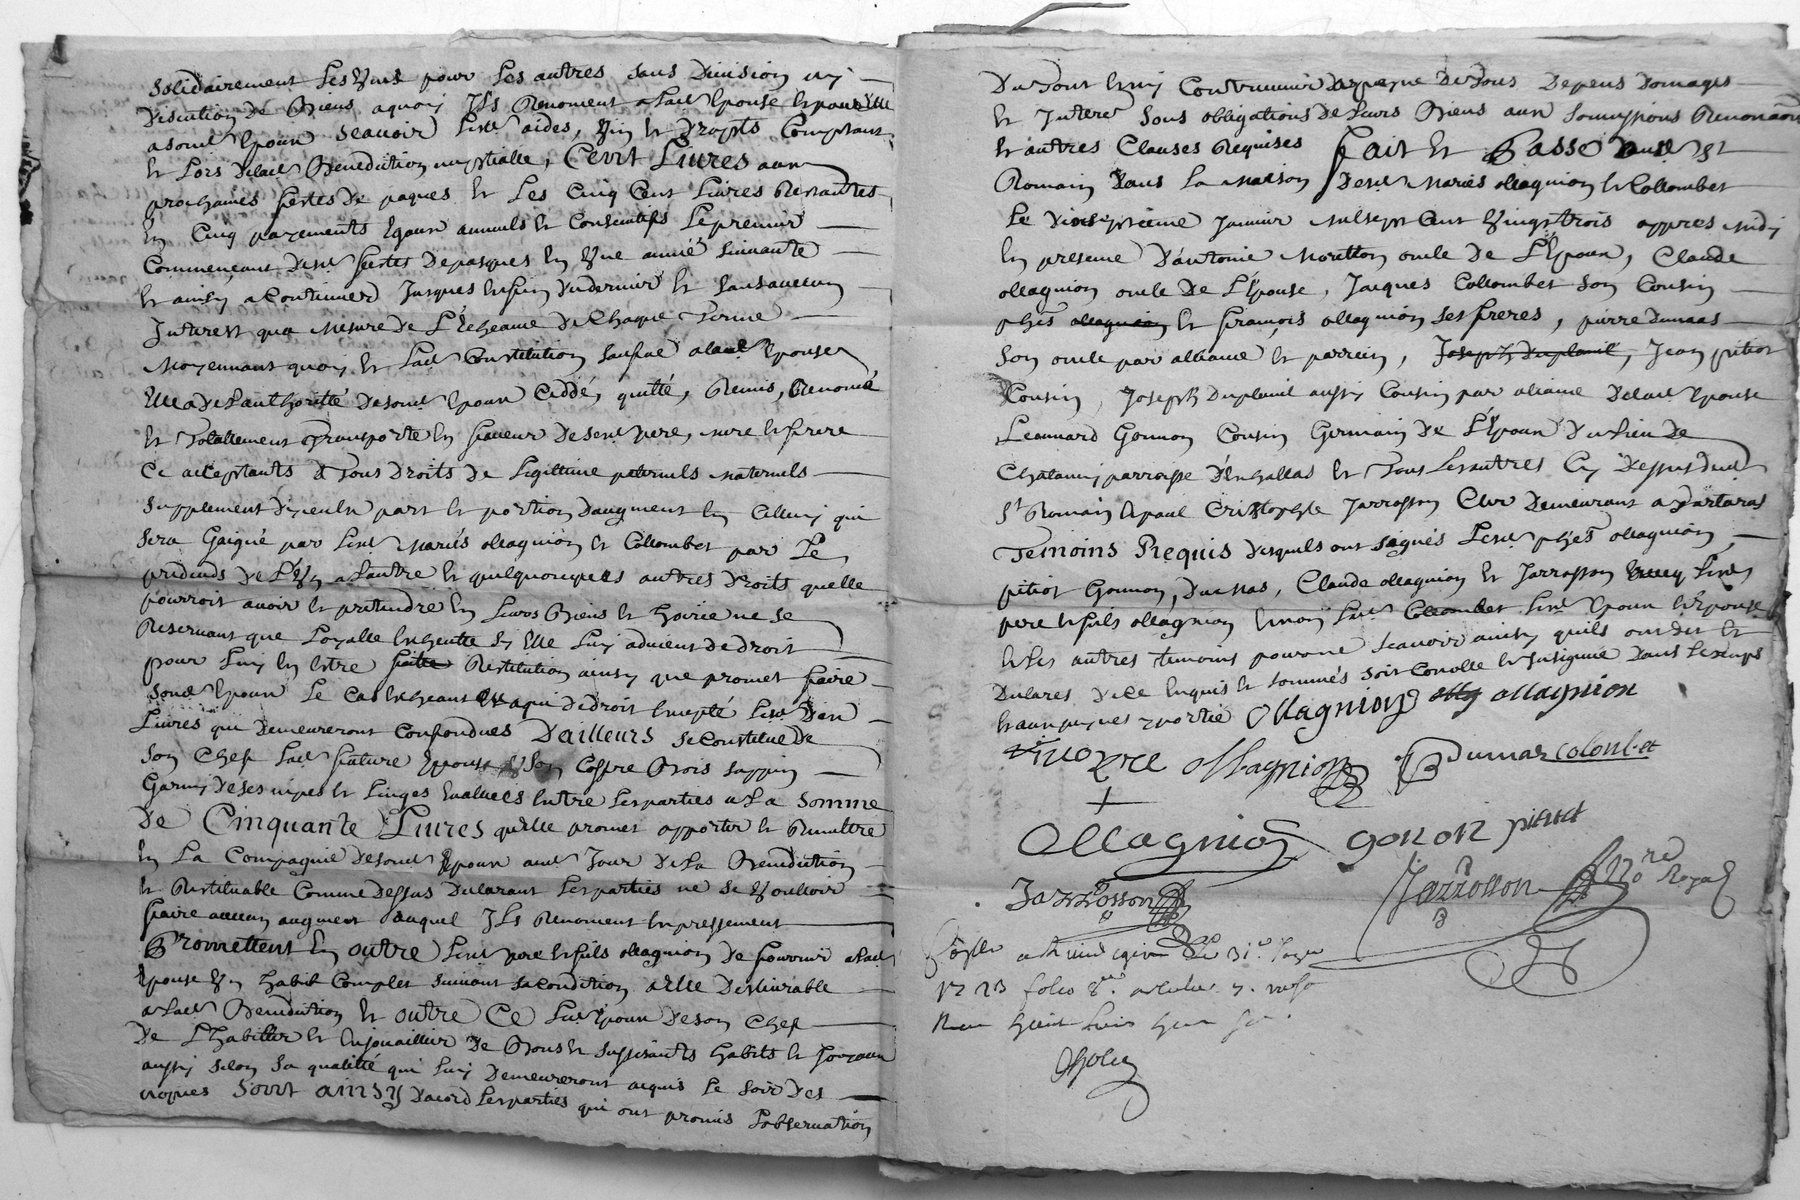 solidairement les Uns pour les autres sans Division ny
Discution de Biens aquoy Ils Renoncent a lad Epouse et pour Elle
a sond Epoux scavoir lesd aides, Vin et Dropts Comptant
et Lors delad Benediction nuptialle, Cent Livres aux
prochaines festes de paques et Les Cinq Cent Livres Restantes
En Cinq payements Egaux annuels et Consecutifs Le premier
Commençant desd festes depasques En Une année suivante
et ainsy a Continuer Jusques Enfin du dernier et sans aucun
Interest qua Mesure de L'Echeance de Chaque Terme
Moyennant quoy et Lad Constitution sus faite alad Epouse
Elle a de l'authorité desond Epoux Ceddé, quitté, Remis, Renoncé
et Totallement Transporté En faveur de sesd pere, mere et frere
Ce acceptants Tous Droits de Legittime paternels Maternels
supplement d'jceulx part et portion daugment En Celluy qui
sera Gaigné par lesd Mariés ollagnion et Collombet par Le
predeceds de L'Un a Lautre et quelquonques autres Droits quelle
pourroit avoir et pretendre En Leurs Biens et hoirie ne se
Reservant que Loyalle Escheutte sy Elle Luy advient de droit
pour Luy En Estre faitte Restitution ainsy que promet faire
sond Epoux Le Cas Echeant Et a qui de droit Excepté lesd Dix
Livres qui Demeureront Confondues D'ailleurs se Constitue De
son Chef Lad future Epouse Un son Coffre Bois sappin
Garny de ses nipes et Linges Evalués Entre Les parties a La somme
De Cinquante Livres quelle promet apporter et Remettre
En La Compagnie desond Epoux aud Jour de La Benediction
et Restituable Comme Dessus Declarant Les parties ne se Voulloir
faire aucun augment auquel Ils Renoncent Expressement
Promettent En outre Lesd pere et fils ollagnion de fournir a lad
Epouse Un habit Complet suivant sa Condition a Elle Deslivrable
a Lad Benediction Et outre Ce Led Epoux de son Chef
De L'habiller et Enjouailler de Bons et suffisants habits et Joyaux
aussy selon sa qualitté qui Luy Demeureront acquis Le soir des
nopces Sont ainsy Dacord Les parties qui ont promis L'observation
Du Tout Et ny Contrevenir a peyne De Tous Depens Domages
et Interest sous obligations de Leurs Biens aux soumissions Renonciaons
et autres Clauses Requises fait et Passé aud St
Romain Dans La Maison desd Mariés ollagnion et Collombet
Le dixseptieme Janvier Mil sept Cent Vingt trois appres Midy
En presence D'antoine Moretton oncle de L'Epoux, Claude
ollagnion oncle de L'Epouse, Jacques Collombet son Cousin
phes ollagnion et françois ollagnion ses freres, pierre dumas
son oncle par alliance et parrein, Joseph Duplanil, Jean pitiot
Cousin, Joseph Duplanil aussy Cousin par aliance delad Epouse
Leonnard Gonnon Cousin Germain de L'Epoux du Lieu de
Chalamy parroisse D'Echallas et Tous Les autres Cy Dessus dud
St Romain Et paul Cristophle Jarrosson Clerc Demeurant a Tartaras
Temoins Requis desquels ont signés Lesd phes ollagnion,
pitiot Gonnon, Dumas, Claude ollagnion et Jarrosson avecq Lesd
pere et fils ollagnion Et non Lad Collombet Lesd Epoux Et Epouse
et Les autres temoins pour ne scavoir ainsy quils ont dit et
Declaré de ce Enquis et sommés soit Conolle Et Insigniue dans Le temps
Et aux peynes portée Ollagnion ollagnion
ollagnion Dumas colonbet
Ollagnion gonon pitiot
Jarrosson Jarrosson Nore Royal
1723 folio 8. article 7. recto